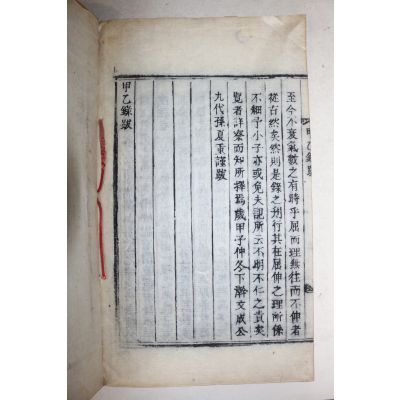 甲乙錄跋
至今不衰氣數之有時乎屈而理無往而不伸者
從古然矣然則是錄之刋行其在屈伸之理所係
不細予小子亦或免夫記所云不明不仁之責矣
覽者詳察而知所擇焉歲甲子仲冬下澣文成公
九代孫夏秉謹跋
甲乙錄跋